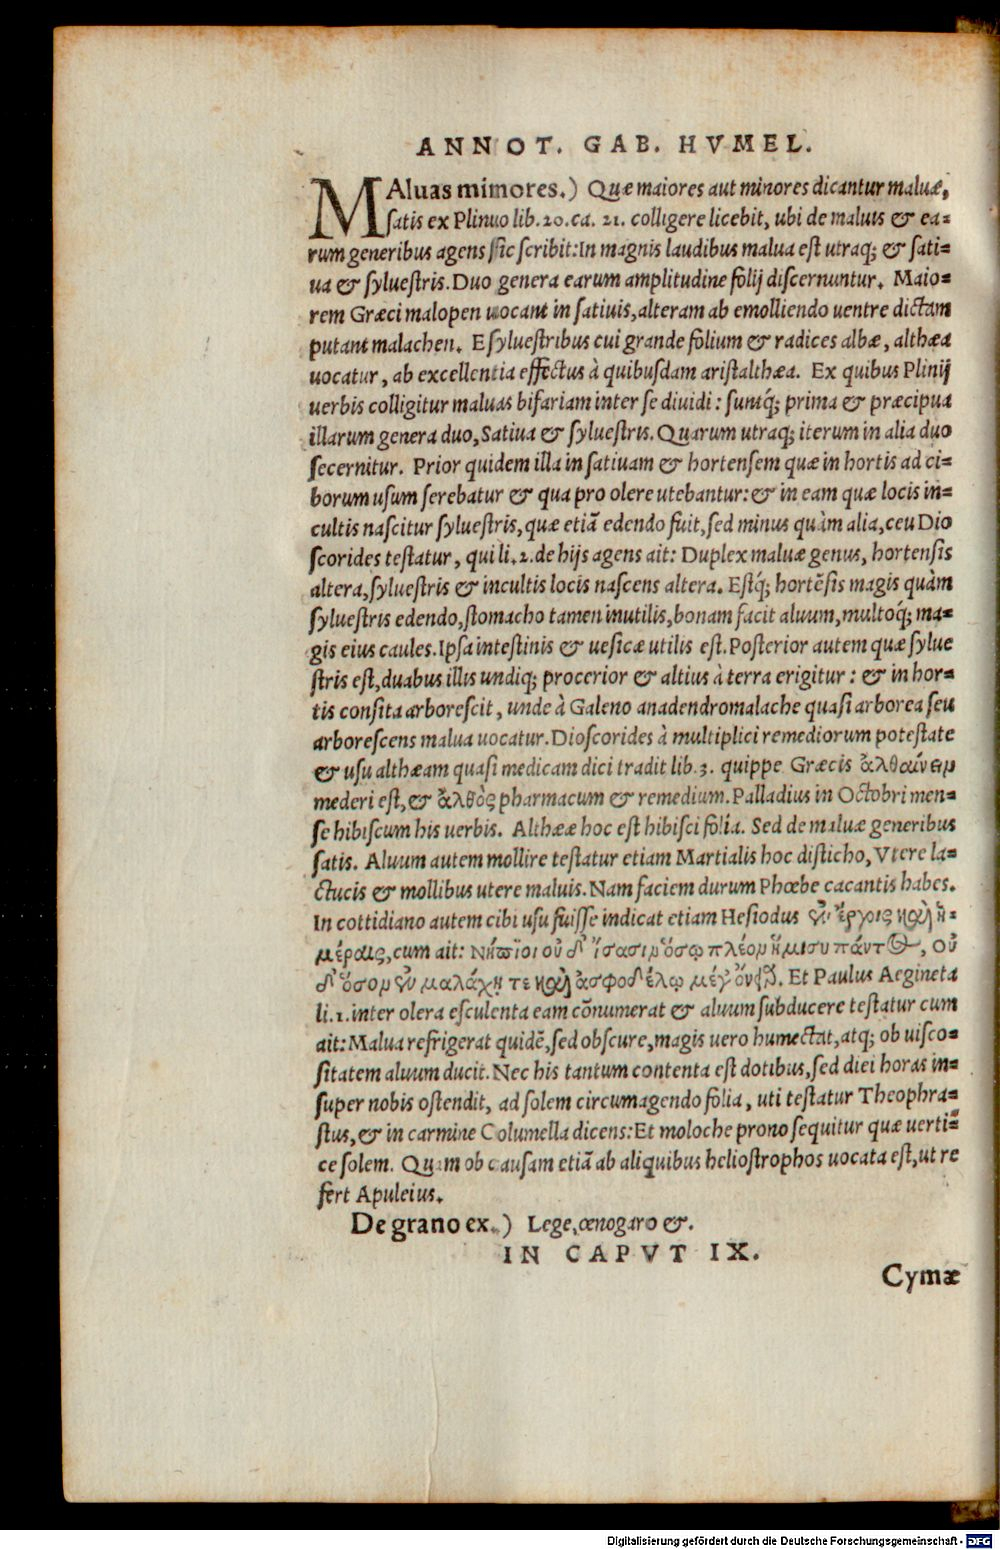 ANNOT. GAB. HVMEL.
MAluas minores.) Quæ maiores aut minores dicantur maluæ,
satis ex Plinio lib. 20. ca. 21. colligere licebit, ubi de maluis & ea=
rum generibus agens sic scribit: In magnis laudibus malua est utraq; & sati=
ua & syluestris. Duo genera earum amplitudine folij discernuntur. Maio=
rem Græci malopen uocant in satiuis, alteram ab emolliendo uentre dictam
putant malachen. E syluestribus cui grande folium & radices albæ, althæa
uocatur, ab excellentia effectus à quibusdam aristalthæa. Ex quibus Plinij
uerbis colligitur maluas bifariam inter se diuidi: suntq; prima & præcipua
illarum genera duo, Satiua & syluestris. Quarum utraq; iterum in alia duo
secernitur. Prior quidem illa in satiuam & hortensem quæ in hortis ad ci=
borum usum serebatur & qua pro olere utebantur: & in eam quæ locis in=
cultis nascitur syluestris, quæ etiã edendo fuit, sed minus quàm alia, ceu Dio
scorides testatur, qui li. 2. de hijs agens ait: Duplex maluæ genus, hortensis
altera, syluestris & incultis locis nascens altera. Estq́; hortẽsis magis quàm
syluestris edendo, stomacho tamen inutilis, bonam facit aluum, multoq́; ma=
gis eius caules. Ipsa intestinis & uesicæ utilis est. Posterior autem quæ sylue
stris est, duabus illis undiq; procerior & altius à terra erigitur: & in hor=
tis consita arborescit, unde à Galeno anadendromalache quasi arborea seu
arborescens malua uocatur. Dioscorides à multiplici remediorum potestate
& usu althæam quasi medicam dici tradit lib. 3. quippe Græcis ἀλθαίνειν
mederi est, & ἄλθος pharmacum & remedium. Palladius in Octobri men=
se hibiscum his uerbis. Althææ hoc est hibisci folia. Sed de maluæ generibus
satis. Aluum autem mollire testatur etiam Martialis hoc disticho, Vtere la=
ctucis & mollibus utere maluis. Nam faciem durum Phœbe cacantis habes.
In cottidiano autem cibi usu fuisse indicat etiam Hesiodus ἐν ἔργοις καὶ ἡ=
μέραις, cum ait: Νήπιοι οὐ δ' ἴσασιν ὅσῳ πλέον ἥμισυ παντὸς, Οὐ
δ' ὅσον ἐν μαλάχῃ τε καὶ ἀσφοδέλῳ μέγ' ὄνειαρ. Et Paulus Aegineta
li. 1. inter olera esculenta eam cõnumerat & aluum subducere testatur cum
ait: Malua refrigerat quidẽ, sed obscure, magis uero humectat, atq; ob uisco=
sitatem aluum ducit. Nec his tantum contenta est dotibus, sed diei horas in=
super nobis ostendit, ad solem circumagendo folia, uti testatur Theophra=
stus, & in carmine Columella dicens: Et moloche prono sequitur quæ uerti=
ce solem. Quam ob causam etiã ab aliquibus heliostrophos uocata est, ut re
fert Apuleius.
De grano ex.) Lege, œnogaro &.
IN CAPVT IX.
Cymæ
Digitalisierung gefördert durch die Deutsche Forschungsgemeinschaft - DFG